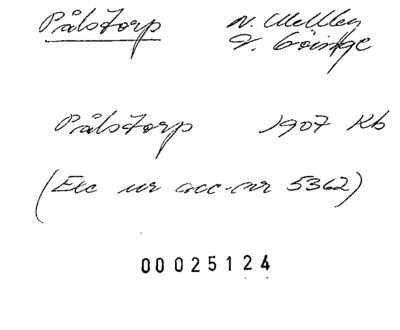 Pålstorp N. Mellby
V. Göinge
Pålstorp 1907 Kb
(Exc ur acc-nr 5362)
00025124